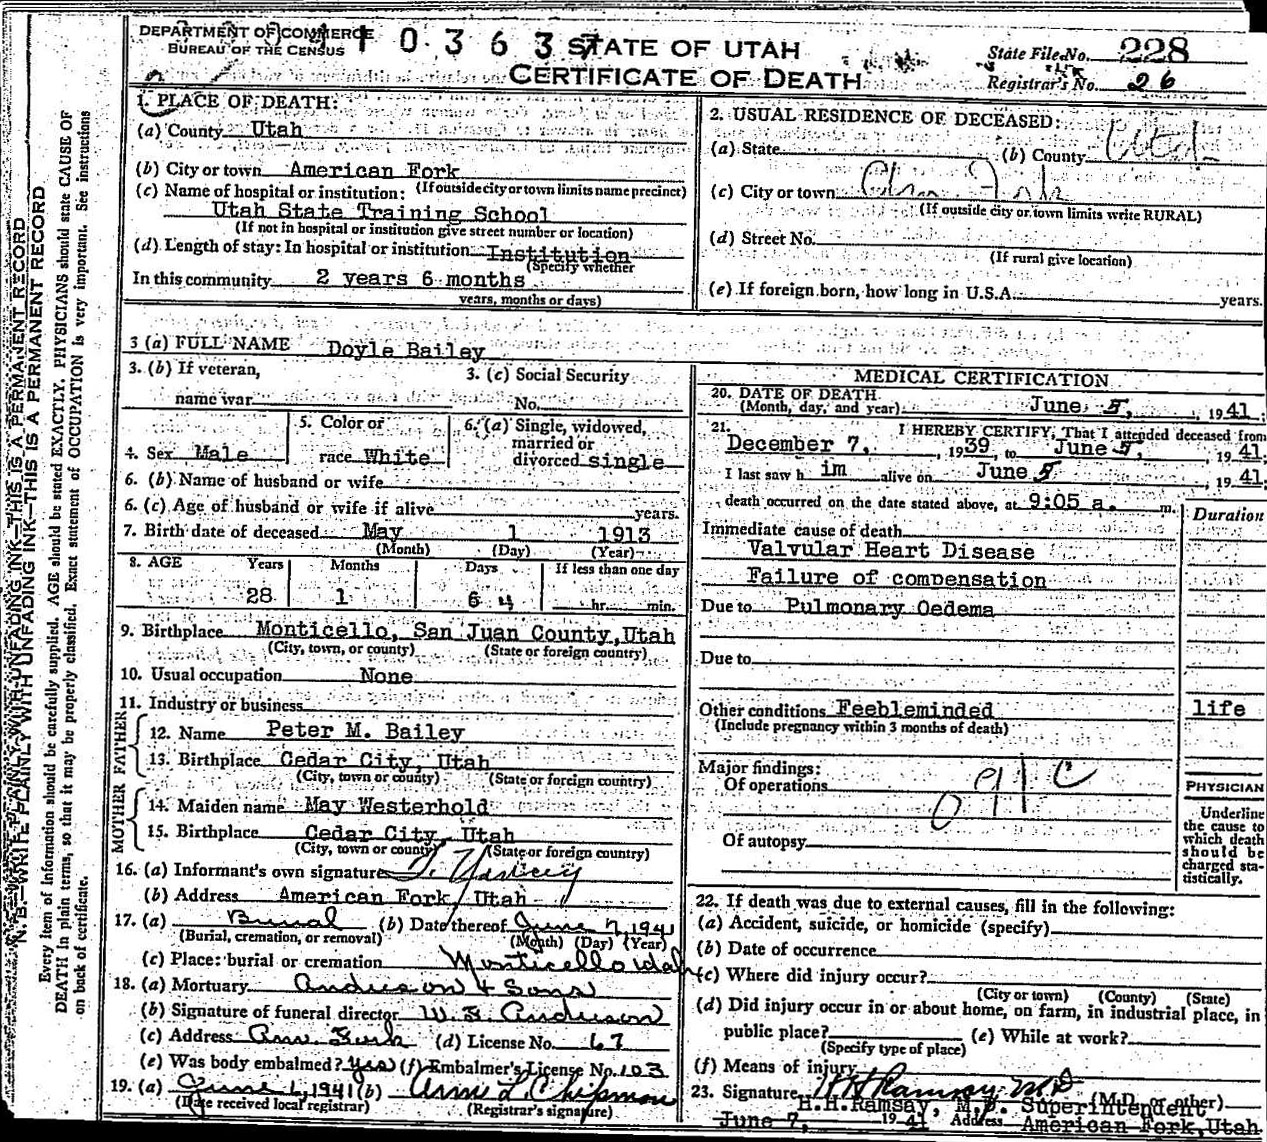 DEPARTMENT OF COMMERCE
BUREAU OF THE CENSUS
1 0 3 6 3
STATE OF UTAH
CERTIFICATE OF DEATH
State File No. 228
Registrar's No. 26
1. PLACE OF DEATH:
(a) County Utah
(b) City or town American Fork
(c) Name of hospital or institution: (If outside city or town limits name precinct)
Utah State Training School
(If not in hospital or institution give street number or location)
(d) Length of stay: In hospital or institution Institution
(Specify whether
In this community 2 years 6 months
years, months or days)
2. USUAL RESIDENCE OF DECEASED:
(a) State (b) County Utah
(c) City or town Am Fork
(If outside city or town limits write RURAL)
(d) Street No.
(If rural give location)
(e) If foreign born, how long in U.S.A. years.
3 (a) FULL NAME Doyle Bailey
3. (b) If veteran,
name war
3. (c) Social Security
No.
4. Sex Male
5. Color or
race White
6. (a) Single, widowed,
married or
divorced single
6. (b) Name of husband or wife
6. (c) Age of husband or wife if alive years.
7. Birth date of deceased May 1 1913
(Month) (Day) (Year)
8. AGE Years Months Days If less than one day
28 1 6 4 hr. min.
9. Birthplace Monticello, San Juan County, Utah
(City, town, or county) (State or foreign country)
10. Usual occupation None
11. Industry or business
FATHER
12. Name Peter M. Bailey
13. Birthplace Cedar City, Utah
(City, town or county) (State or foreign country)
MOTHER
14. Maiden name May Westerhold
15. Birthplace Cedar City, Utah
(City, town or county) (State or foreign country)
16. (a) Informant's own signature
(b) Address American Fork, Utah
17. (a) Burial (b) Date thereof June 7, 1941
(Burial, cremation, or removal) (Month) (Day) (Year)
(c) Place: burial or cremation Monticello Utah
18. (a) Mortuary Anderson & Sons
(b) Signature of funeral director W. E. Anderson
(c) Address Am. Fork (d) License No. 67
(e) Was body embalmed? Yes (f) Embalmer's License No. 103
19. (a) June 1, 1941 (b) L. Chipman
(Date received local registrar) (Registrar's signature)
MEDICAL CERTIFICATION
20. DATE OF DEATH
(Month, day, and year) June 5, 1941;
21. I HEREBY CERTIFY, That I attended deceased from
December 7, 1939, to June 5, 1941;
I last saw h im alive on June 5, 1941;
death occurred on the date stated above, at 9:05 a. m.
Duration
Immediate cause of death
Valvular Heart Disease
Failure of compensation
Due to Pulmonary Oedema
Due to
Other conditions Feebleminded life
(Include pregnancy within 3 months of death)
Major findings:
Of operations
Of autopsy
PHYSICIAN
Underline
the cause to
which death
should be
charged sta-
tistically.
22. If death was due to external causes, fill in the following:
(a) Accident, suicide, or homicide (specify)
(b) Date of occurrence
(c) Where did injury occur?
(City or town) (County) (State)
(d) Did injury occur in or about home, on farm, in industrial place, in
public place? (e) While at work?
(Specify type of place)
(f) Means of injury
23. Signature H H Ramsay M D (M.D. or other)
H.H.Ramsay, M.D. Superintendent
June 7, 1941 Address American Fork, Utah
N. B.—WRITE PLAINLY WITH UNFADING INK—THIS IS A PERMANENT RECORD
Every item of information should be carefully supplied. AGE should be stated EXACTLY. PHYSICIANS should state CAUSE OF
DEATH in plain terms, so that it may be properly classified. Exact statement of OCCUPATION is very important. See instructions
on back of certificate.